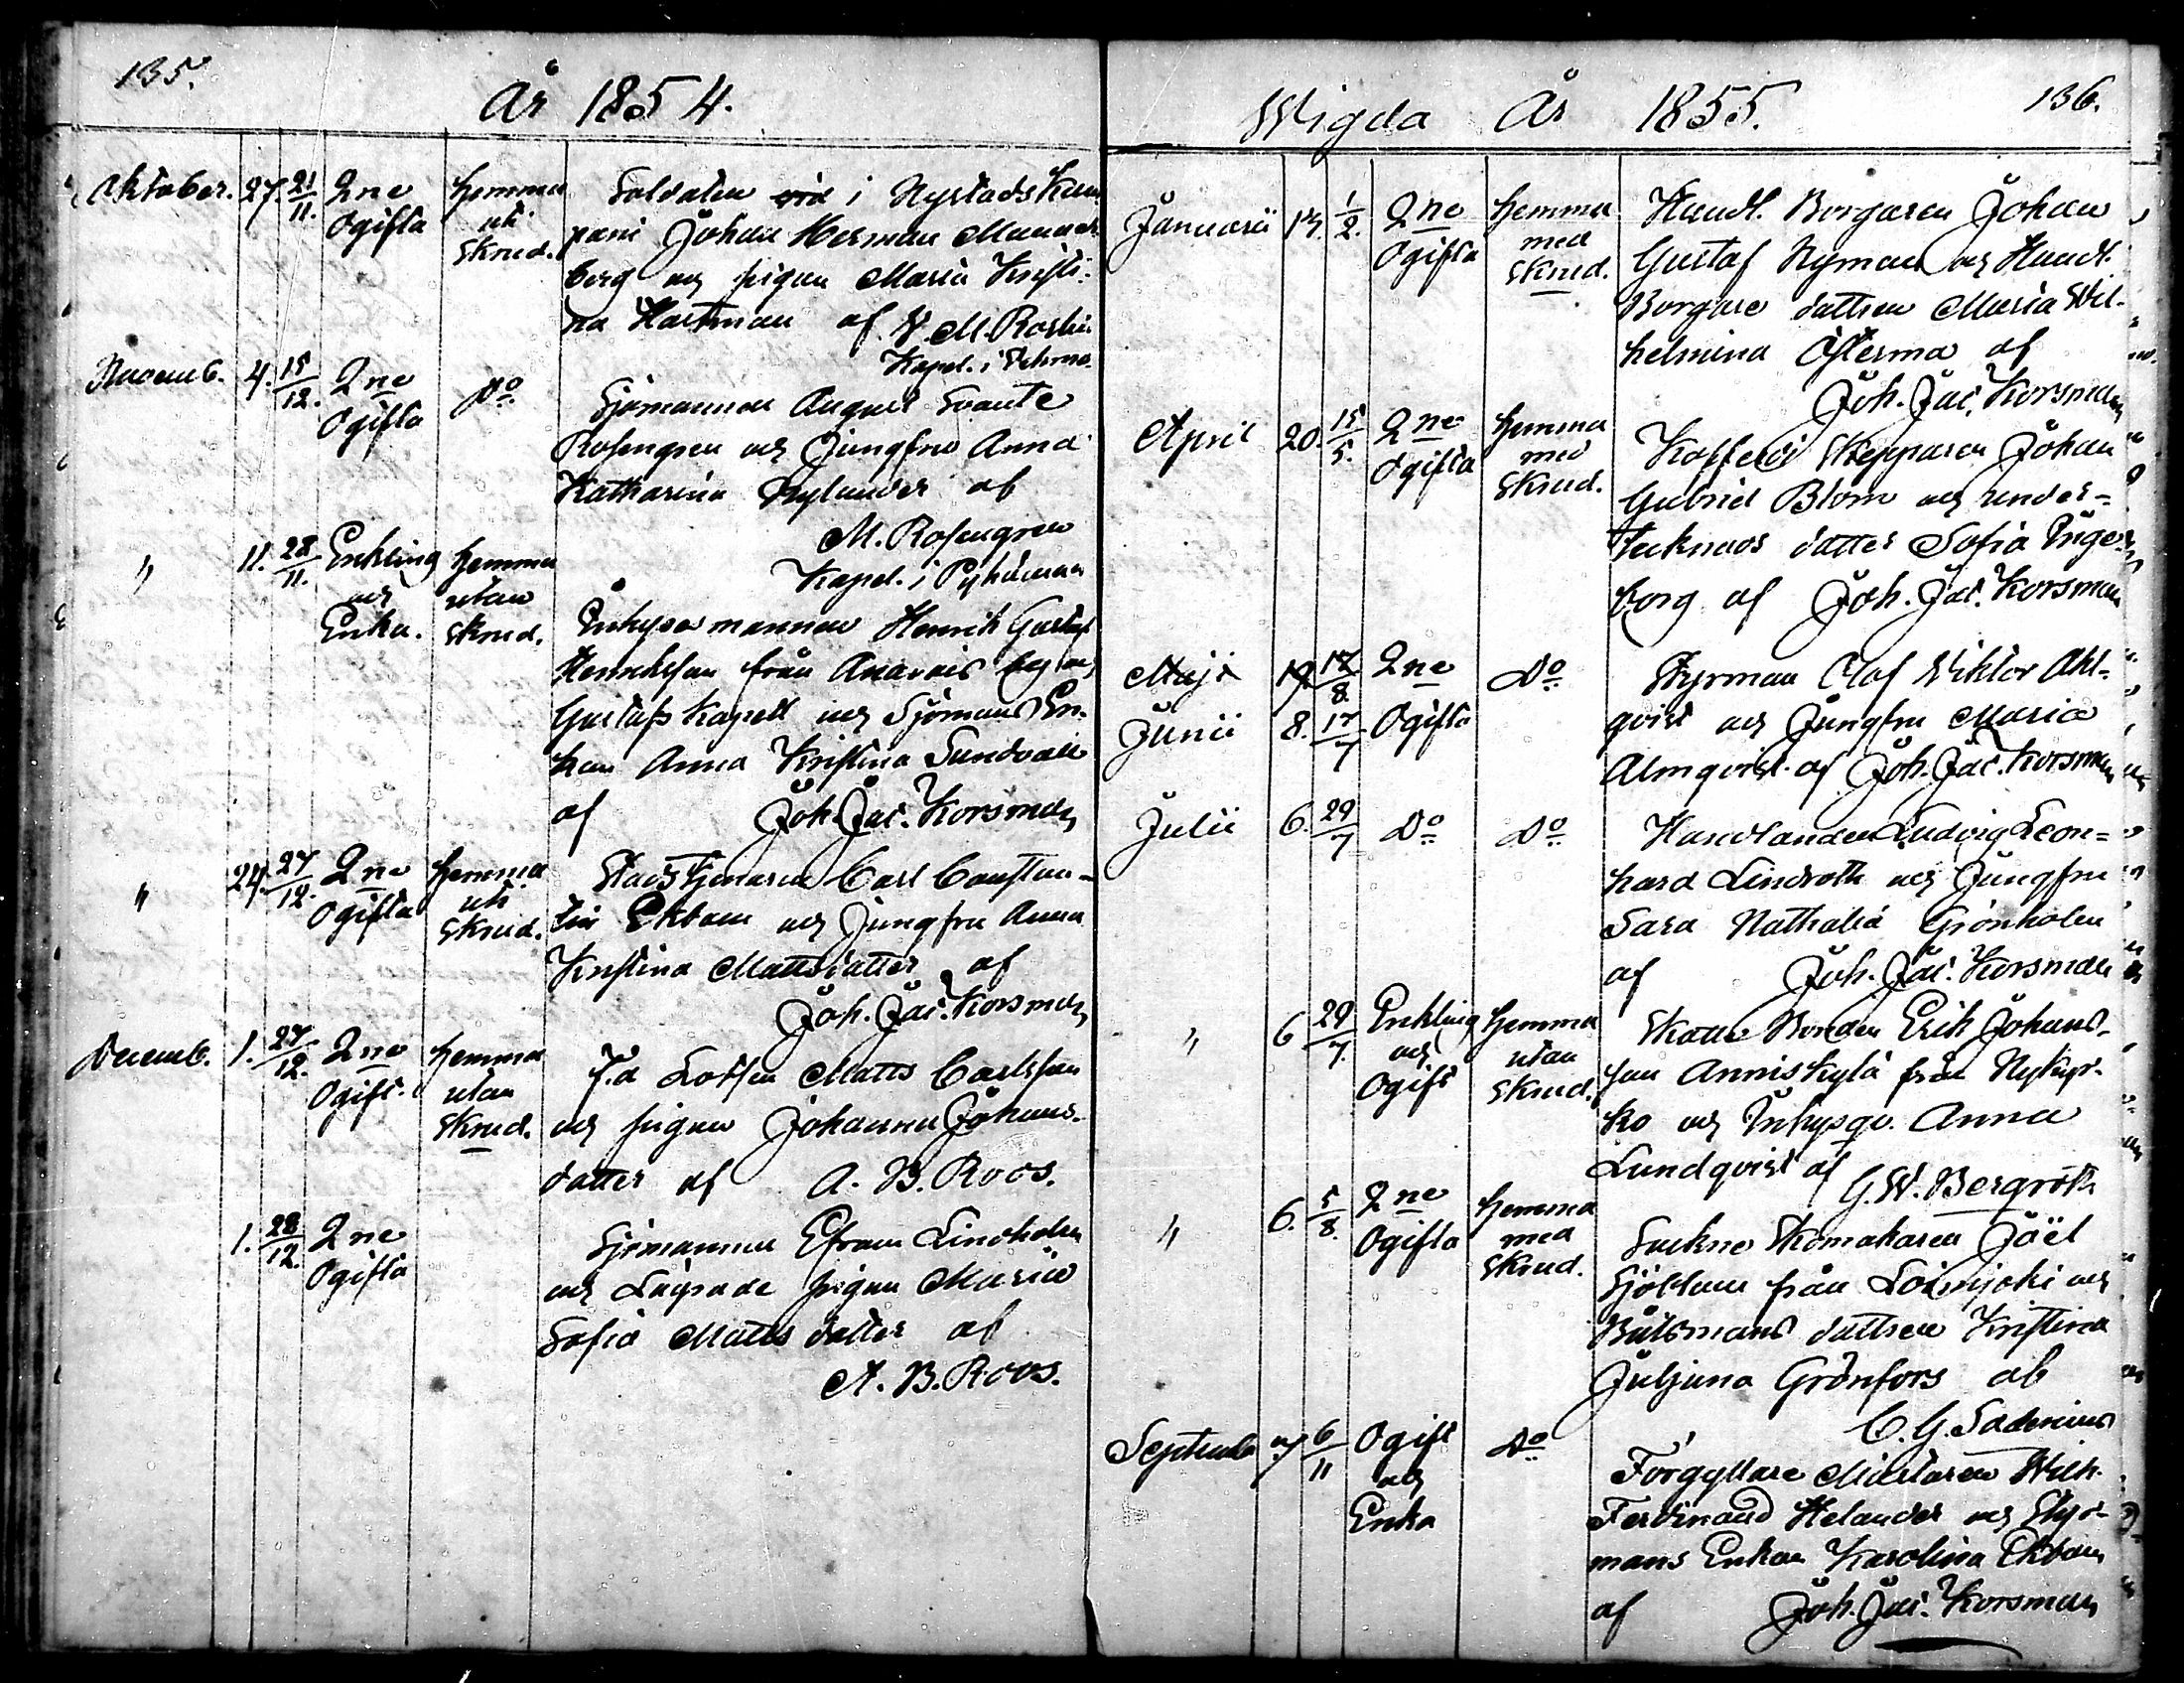 135.
År 1854.
Oktober. 27. 21/11. 2ne Ogifta hemma uti Skrud.
Soldaten vid i Nystads Kum
pani Johan Herman Manner
berg och pigan Maria Kristi-
na Hartman af
Kapel. i
Novemb. 4. 15/12. 2ne Ogifta Do
Sjömannen August Svante
Rosengren och Jungfru Anna
Katharina Nylander af
M. Rosengren
Kapel. i Pyhämaa
" 11. 28/11. Enkling och Enka. hemma utan skrud.
Inhyses mannen Henrik Gustaf
Henriksson från by och
Gustafs Kapell och Sjömans En-
kan Anna Kristina Sundvall
af Joh. Jac. Korsman
" 24. 27/12. 2ne Ogifta hemma uti Skrud.
Stadstjenaren Carl Constan-
tin Ekbom och Jungfru Anna
Kristina Mattsdotter af
Joh. Jac. Korsman
Decemb. 1. 27/12. 2ne Ogift. hemma utan Skrud.
F.d Lotsen Matts Carlsson
och pigan Johanna Johans-
dotter af A. B. Roos.
1. 28/12. 2ne Ogifta
Sjömannen Efraim Lindholm
och Lägrade pigan Maria
Sofia Matts dotter af
A. B. Roos.
Wigda År 1855. 136.
Januarii 1/2. 2ne Ogifta hemma med Skrud.
Handl. Borgaren Johan
Gustaf Nyman och Handl.
Borgare dottren Maria Wil-
helmina Österma af
Joh. Jac. Korsman
April 20. 15/5. 2ne Ogifta hemma med Skrud.
Koffardi Skepparen Johan
Gabriel Blom och Länder-
Tecknars dotter Sofia Inge
borg af Joh. Jac. Korsman
Maji 19 12/8. 2ne Do
Junii 8. 17/7 Ogifta
Styrman Olof Viktor Ahl-
qvist och Jungfru Maria
Almqvist af Joh. Jac. Korsman
Julii 6. 29/7 Do Do
Handlanden Ludvig Leon-
hard Lindroth och Jungfru
Sara Nathalia Grönholm
af Joh. Jac. Korsman
" 6 29/7. Enkling och Ogift hemma utan Skrud.
Skatte Bonden Erik Johans-
son Anniskylä från Nykyr-
ko och Inhysqv. Anna
Lundqvist af G. W. Bergroth
" 6. 5/8. 2ne Ogifta hemma med Skrud.
Sockne Skomakaren Joël
Sjöblom från Loimijoki och
Båtsmans dottren Kristina
Juljana Grönfors af
Septemb 7. 6/11 Ogift och Enka Do
Förgyllare Mästaren Wilh.
Ferdinand Helander och Styr-
mans Enkan Karolina Ekbom
af Joh. Jac. Korsman